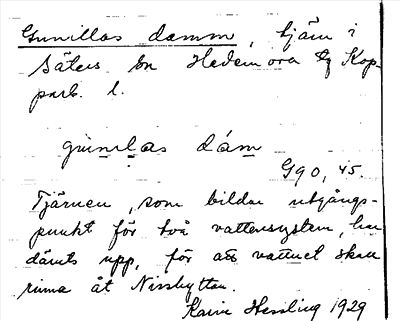 Gunillas damm, tjärn i
Säters sn Hedemora tg Kop-
parb. l.
gùnılas dám
G90, 45.
Tjärnen, som bildar utgångs-
punkt för två vattensystem, har
dämts upp, för att vattnet skall
rinna åt Nisshyttan.
Karin Hessling 1929